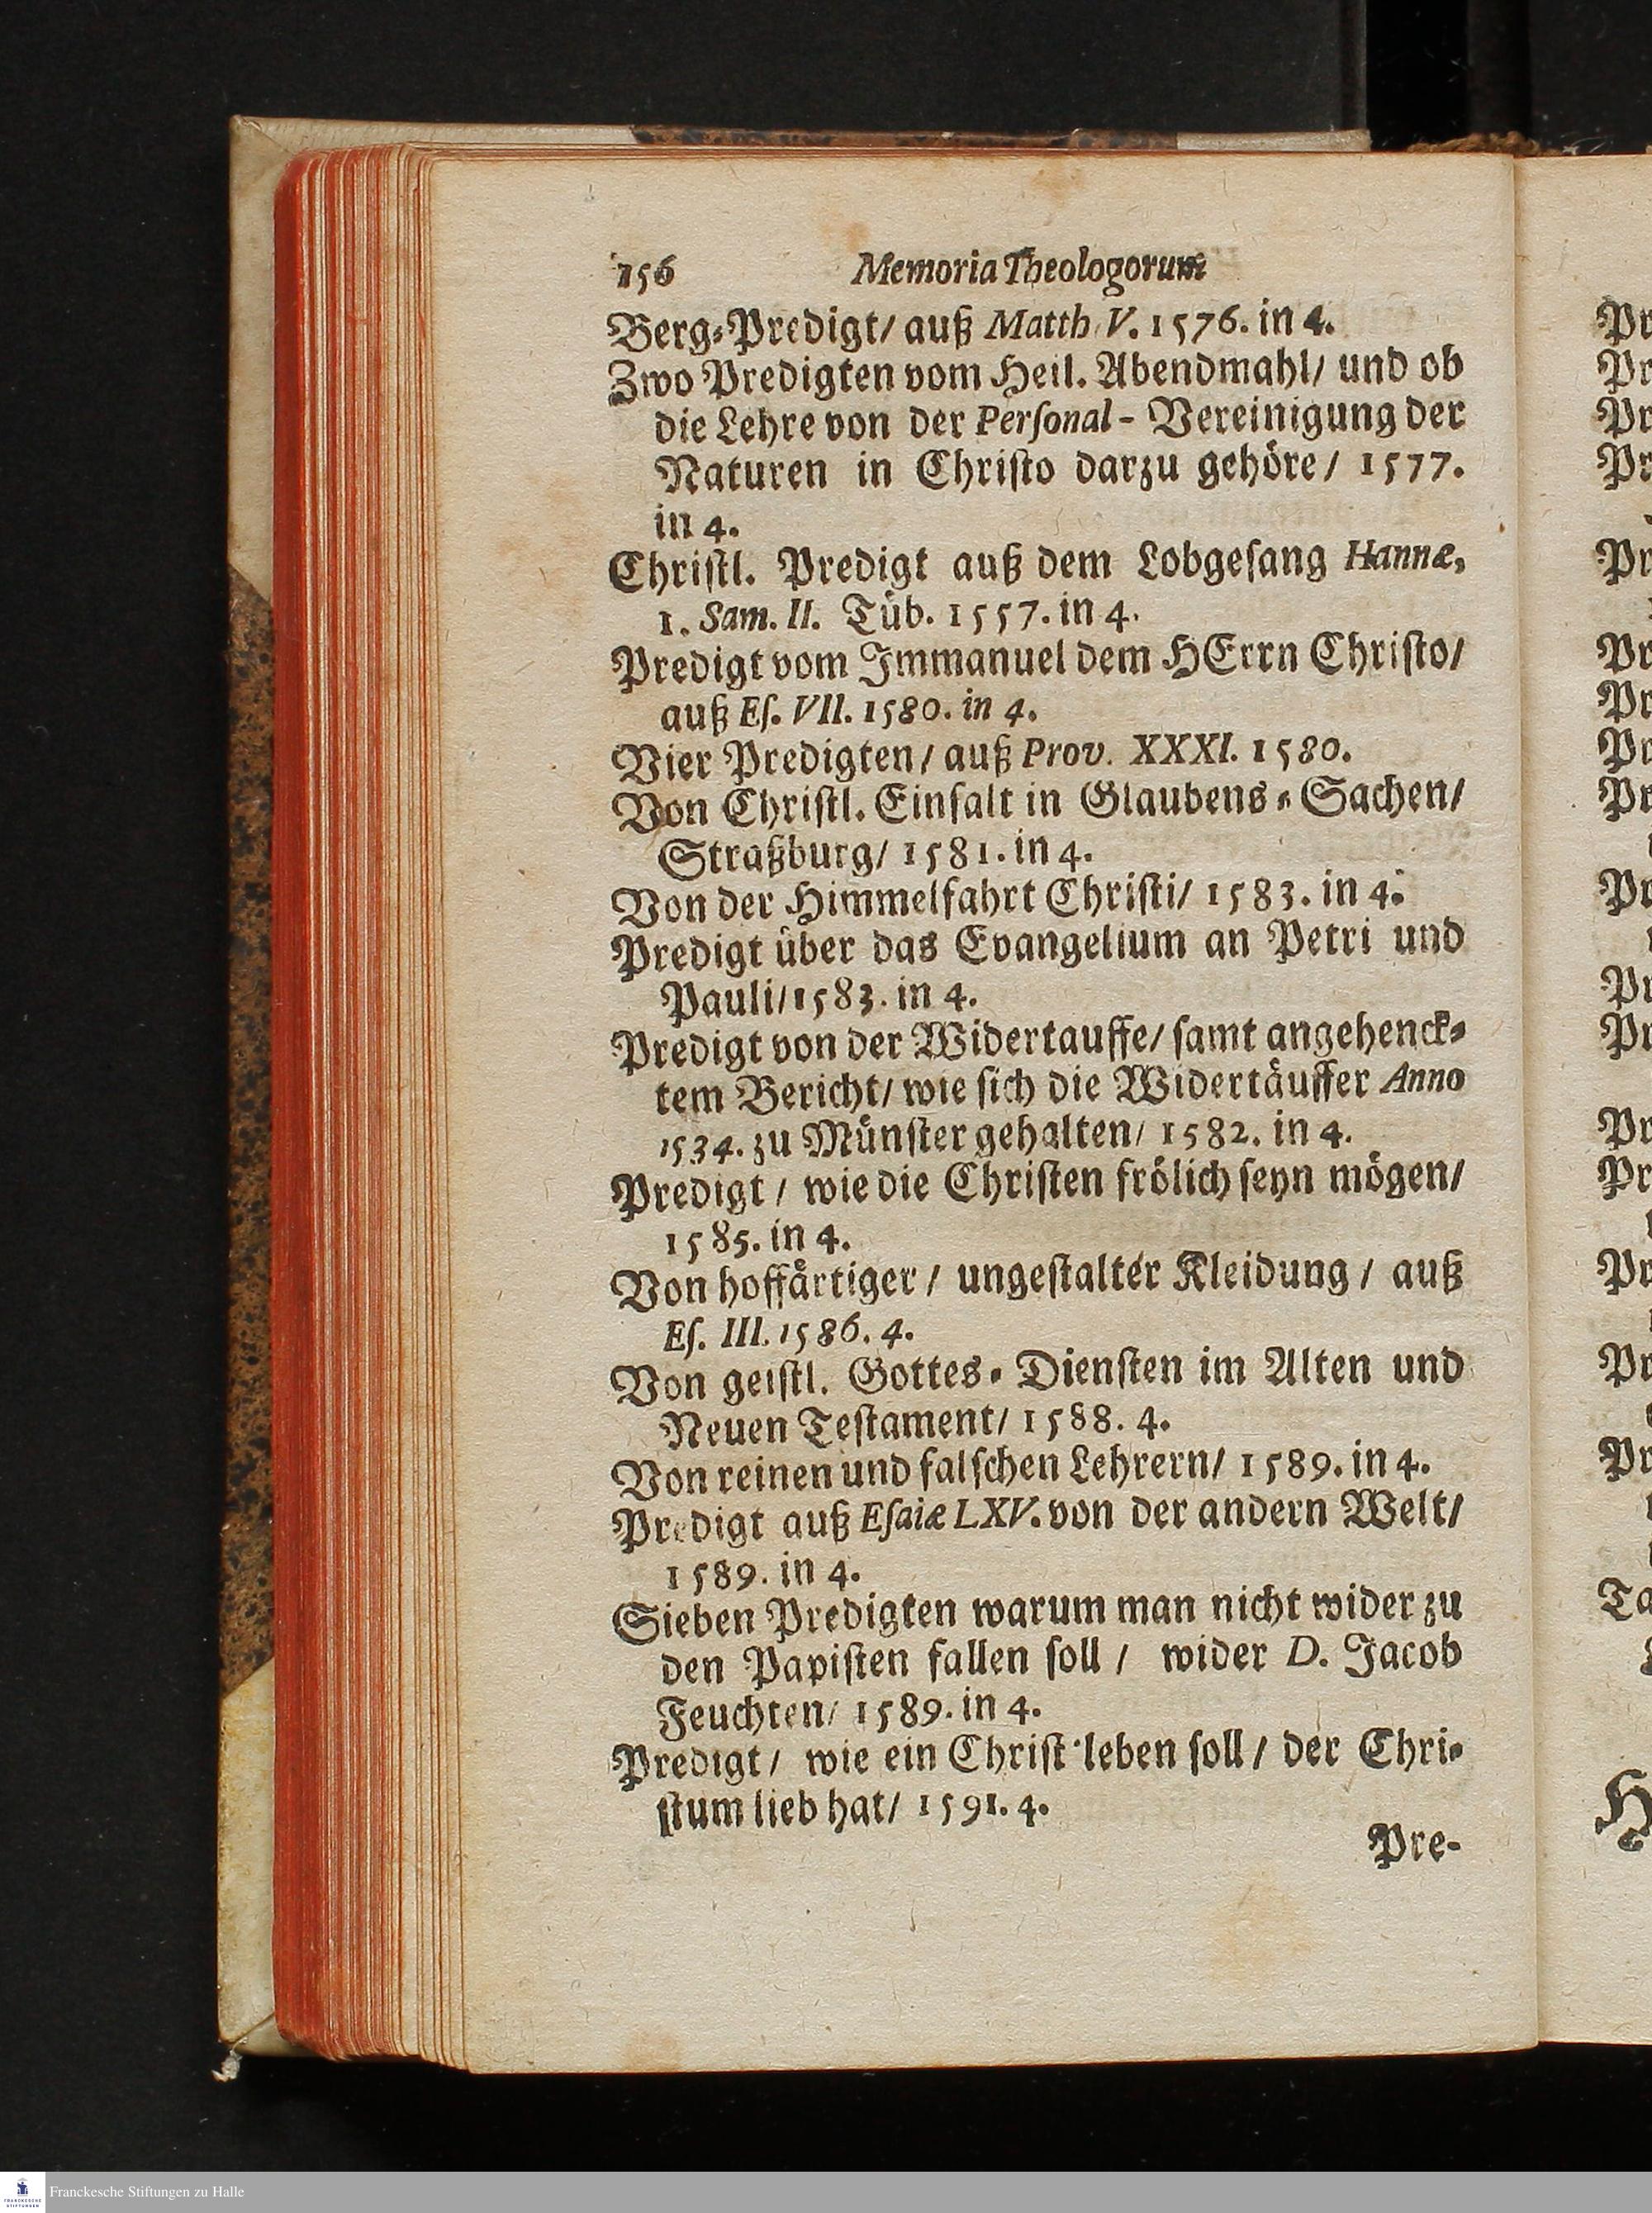 156 Memoria Theologorum
Berg-Predigt/ auß Matth. V. 1576. in 4.
Zwo Predigten vom Heil. Abendmahl/ und ob
die Lehre von der Perſonal - Vereinigung der
Naturen in Chriſto darzu gehöre/ 1577.
in 4.
Chriſtl. Predigt auß dem Lobgeſang Hannæ,
1. Sam. II. Tüb. 1557. in 4.
Predigt vom Immanuel dem HErrn Chriſto/
auß Eſ. VII. 1580. in 4.
Vier Predigten/ auß Prov. XXXI. 1580.
Von Chriſtl. Einfalt in Glaubens-Sachen/
Straßburg/ 1581. in 4.
Von der Himmelfahrt Chriſti/ 1583. in 4.
Predigt über das Evangelium an Petri und
Pauli/ 1583. in 4.
Predigt von der Widertauffe/ ſamt angehenck-
tem Bericht/ wie ſich die Widertäuffer Anno
1534. zu Münſter gehalten/ 1582. in 4.
Predigt / wie die Chriſten frölich ſeyn mögen/
1585. in 4.
Von hoffärtiger / ungeſtalter Kleidung / auß
Eſ. III. 1586. 4.
Von geiſtl. Gottes-Dienſten im Alten und
Neuen Teſtament/ 1588. 4.
Von reinen und falſchen Lehrern/ 1589. in 4.
Predigt auß Eſaiæ LXV. von der andern Welt/
1589. in 4.
Sieben Predigten warum man nicht wider zu
den Papiſten fallen ſoll / wider D. Jacob
Feuchten/ 1589. in 4.
Predigt / wie ein Chriſt leben ſoll / der Chri-
ſtum lieb hat/ 1591. 4.
Pre-
Franckesche Stiftungen zu Halle